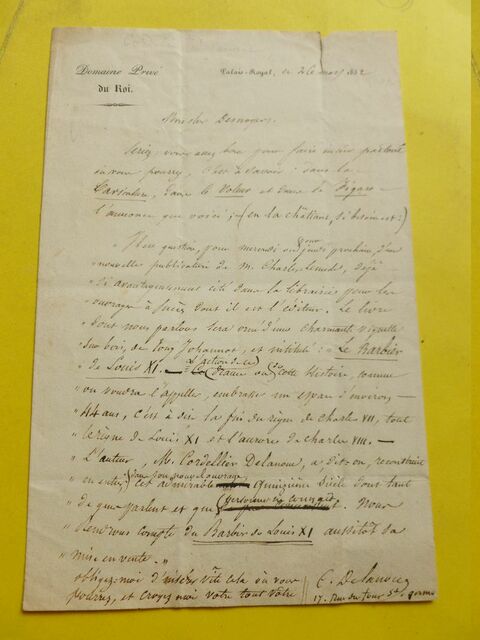 Domaine Privé
du Roi.
Palais-Royal, le 26 mars 1832
Monsieur Desnoyers,
Seriez-vous assez bon pour faire insérer partout
où vous pourrez, c'est à savoir : dans la
Caricature, dans le Voleur et dans le Figaro
l'annonce que voici ; (en la châtiant, si besoin est :)
Il est question, pour mercredi ou jeudi prochain, d'une
pour
" nouvelle publication de M. Charles Lemesle, déjà
" si avantageusement cité dans la librairie pour les
" ouvrages à succès dont il est l'éditeur. Le livre
" dont nous parlons sera orné d'une charmante vignette
" sur bois, de Tony Johannot, et intitulé : Le Barbier
" de Louis XI. — L'action de ce
drame ou de cette histoire, comme
" on voudra l'appeler, embrasse un espace d'environ
" 44 ans, c'est à dire la fin du règne de Charles VII, tout
" le règne de Louis XI et l'aurore de Charles VIII. —
" L'auteur, M. Cordellier Delanoue, a dit-on reconstruit
" en entier dans son nouvel ouvrage
cet admirable Quinzième siècle dont tant
" de gens parlent et que personne ne connait. Nous
" rendrons compte du Barbier de Louis XI aussitôt sa
" mise en vente. "
obligez-moi d'insérer vite cela où vous
pourrez, et croyez moi votre tout vôtre
C. Delanoue
17. rue du four St. germain